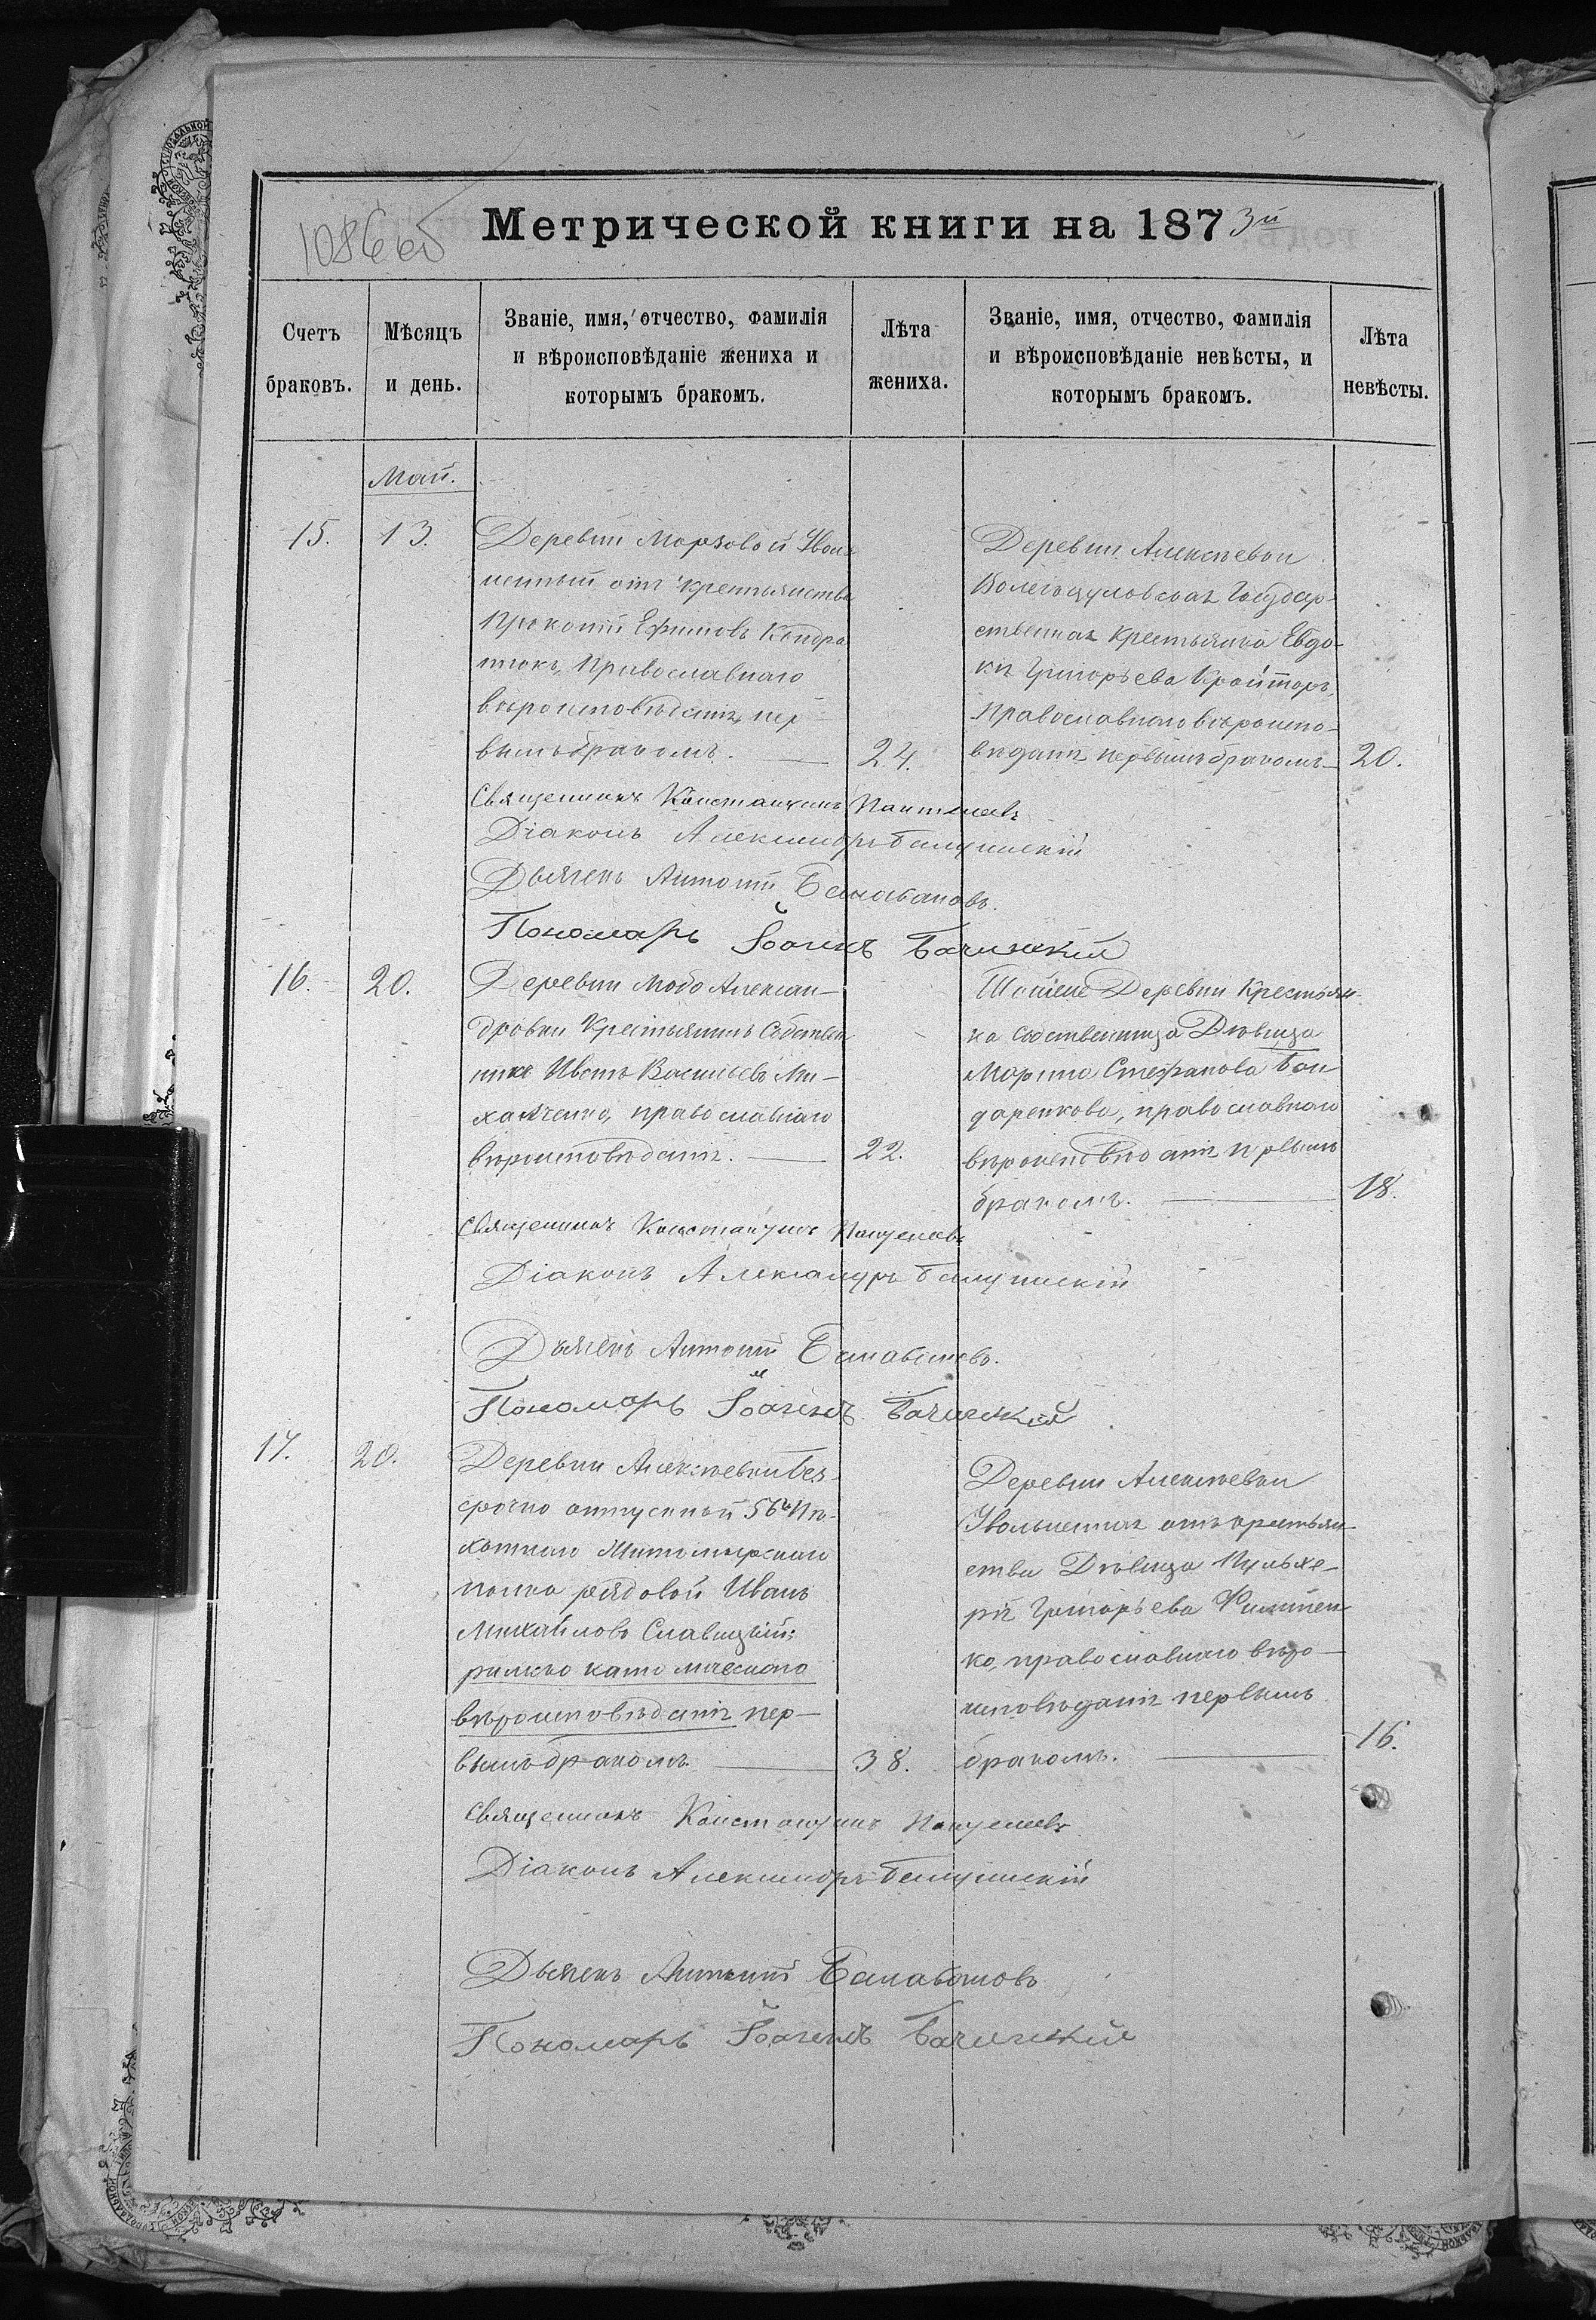 1086об
Метрической книги на 1873й
Счетъ браковъ.
Мѣсяцъ и день.
Званіе, имя, отчество, фамилія
и вѣроисповѣданіе жениха и
которымъ бракомъ.
Лѣта жениха.
Званіе, имя, отчество, фамилія
и вѣроисповѣданіе невѣсты, и
которымъ бракомъ.
Лѣта невѣсты.
Май.
15.
13.
Деревни Морзовой Уволь
ненный отъ крестьянства
Прокопій Ефимовъ Кондра
тюкъ, Православнаго
вѣроисповѣданія, пер
вымъ бракомъ.
24.
Деревни Алексѣевки
Государ-
ственная крестьянка Евдо-
кія Григорьева Крайторъ,
Православнаго вѣроиспо-
вѣданія первымъ бракомъ
20.
Священникъ Константинъ
Діаконъ Александръ
Дьячекъ Антоній Балабановъ.
Пономарь Іоаннъ
16.
20.
Деревни Ново Алексан-
дровки Крестьянинъ Собствен
никъ Иванъ Васильевъ Ми-
халченко, православнаго
вѣроисповѣданія.
22.
Деревни Крестьян
ка собственница Дѣвица
Марина Стефанова Бон
даренкова, православнаго
вѣроисповѣданія первымъ
бракомъ.
18.
Священникъ Константинъ
Діаконъ Александръ
Дьячекъ Антоній Балабановъ.
Пономарь Іоаннъ
17.
20.
Деревни Алексѣевки без-
срочно отпускной 56го Пѣ-
хотнаго Житомирскаго
полка рядовой Иванъ
Михайловъ Славицкій;
римско католическаго
вѣроисповѣданія пер-
вымъ бракомъ.
38.
Деревни Алексѣевки
Уволенная отъ крестьян
ства Дѣвица Пульхе-
рія Григорьева Филипен
ко, православнаго вѣро-
исповѣданія первымъ
бракомъ.
16.
Священникъ Константинъ
Діаконъ Александръ
Дьячекъ Антоній Балабановъ
Пономарь Іоаннъ